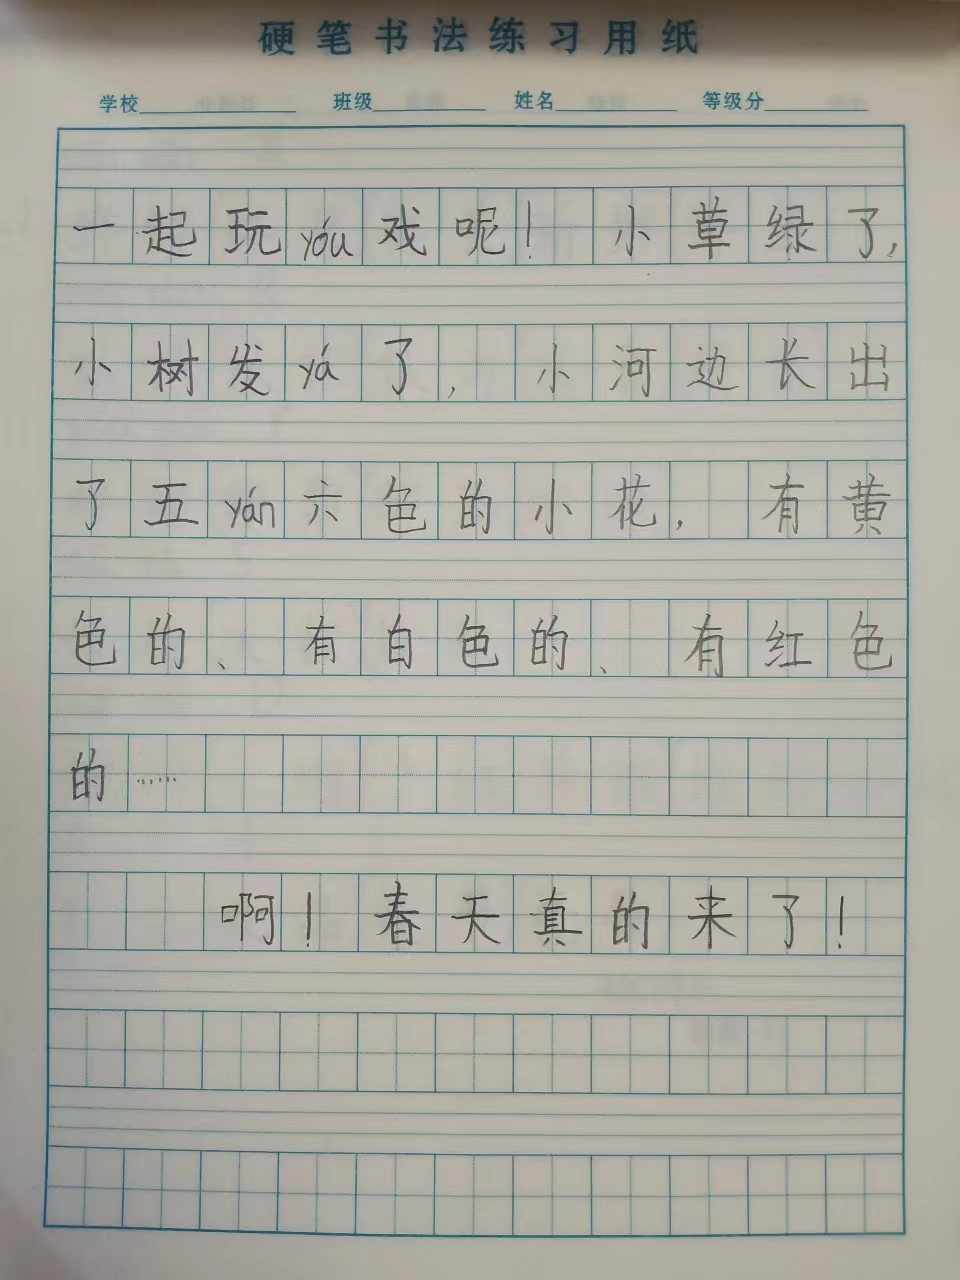 硬笔书法练习用纸
学校 班级 姓名 等级分
一起玩yóu戏呢！小草绿了，
小树发yá了，小河边长出
了五yán六色的小花，有黄
色的、有白色的、有红色
的……
啊！春天真的来了！